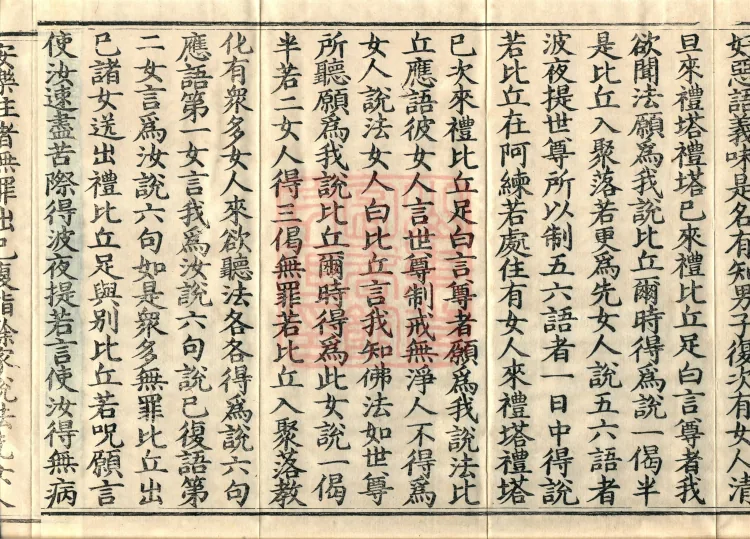 好惡語義味是名有知男子復次有女人清
旦來禮塔禮塔已來禮比丘足白言尊者我
欲聞法願爲我說比丘爾時得爲說一偈半
是比丘入聚落若更爲先女人說五六語者
波夜提世尊所以制五六語者一日中得說
若比丘在阿練若處住有女人來禮塔禮塔
已次來禮比丘足白言尊者願爲我說法比
丘應語彼女人言世尊制戒無淨人不得爲
女人說法女人白比丘言我知佛法如世尊
所聽願爲我說比丘爾時得爲此女說一偈
半若二女人得三偈無罪若比丘入聚落教
化有衆多女人來欲聽法各各得爲說六句
應語第一女言我爲汝說六句說已復語第
二女言爲汝說六句如是衆多無罪比丘出
已諸女送出禮比丘足與別比丘若呪願言
使汝速盡苦際得波夜提若言使汝得無病
安樂住者無罪出已復詣餘家說法先女人